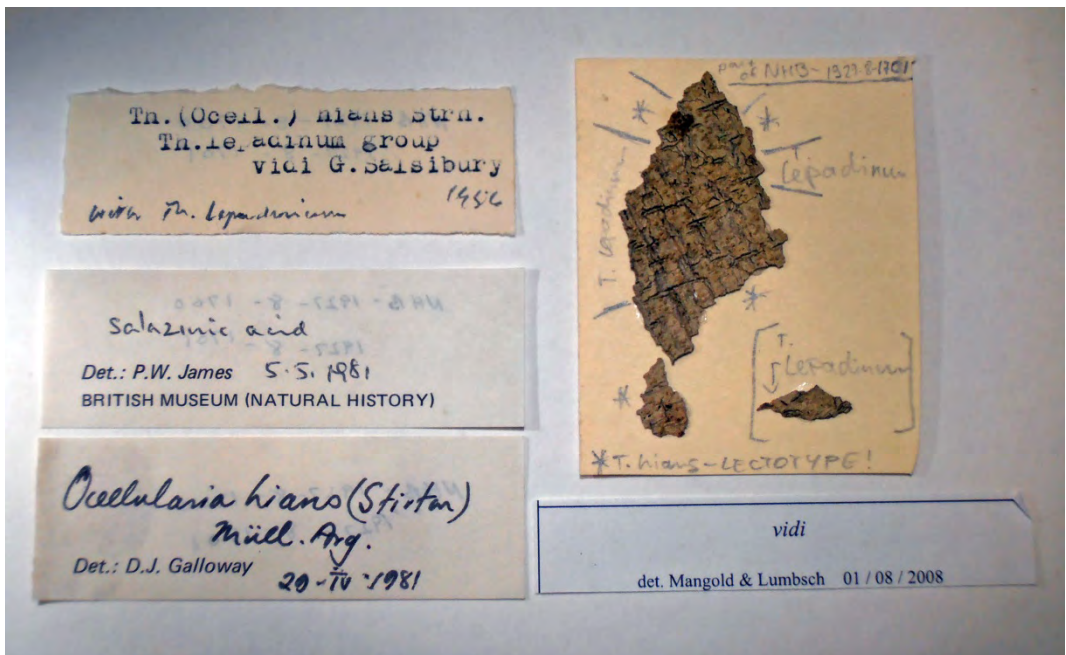 Th.(Ocell.) hians Strn.
Th.lepadinum group
vidi G.Salsibury
with Th. lepadinum 1956
NHB - 1927 - 8 - 1760
salazinic acid
1927 - 8 - 1761
Det.: P.W. James 5.5.1981
BRITISH MUSEUM (NATURAL HISTORY)
Ocellularia hians (Stirton)
Müll. Arg.
Det.: D.J. Galloway 29-IV-1981
part of NHB-1927-8-1761
*
*
T. lepadinum
T. Lepadinum
*
*
T. Lepadinum
* T. hians-LECTOTYPE!
vidi
det. Mangold & Lumbsch 01 / 08 / 2008